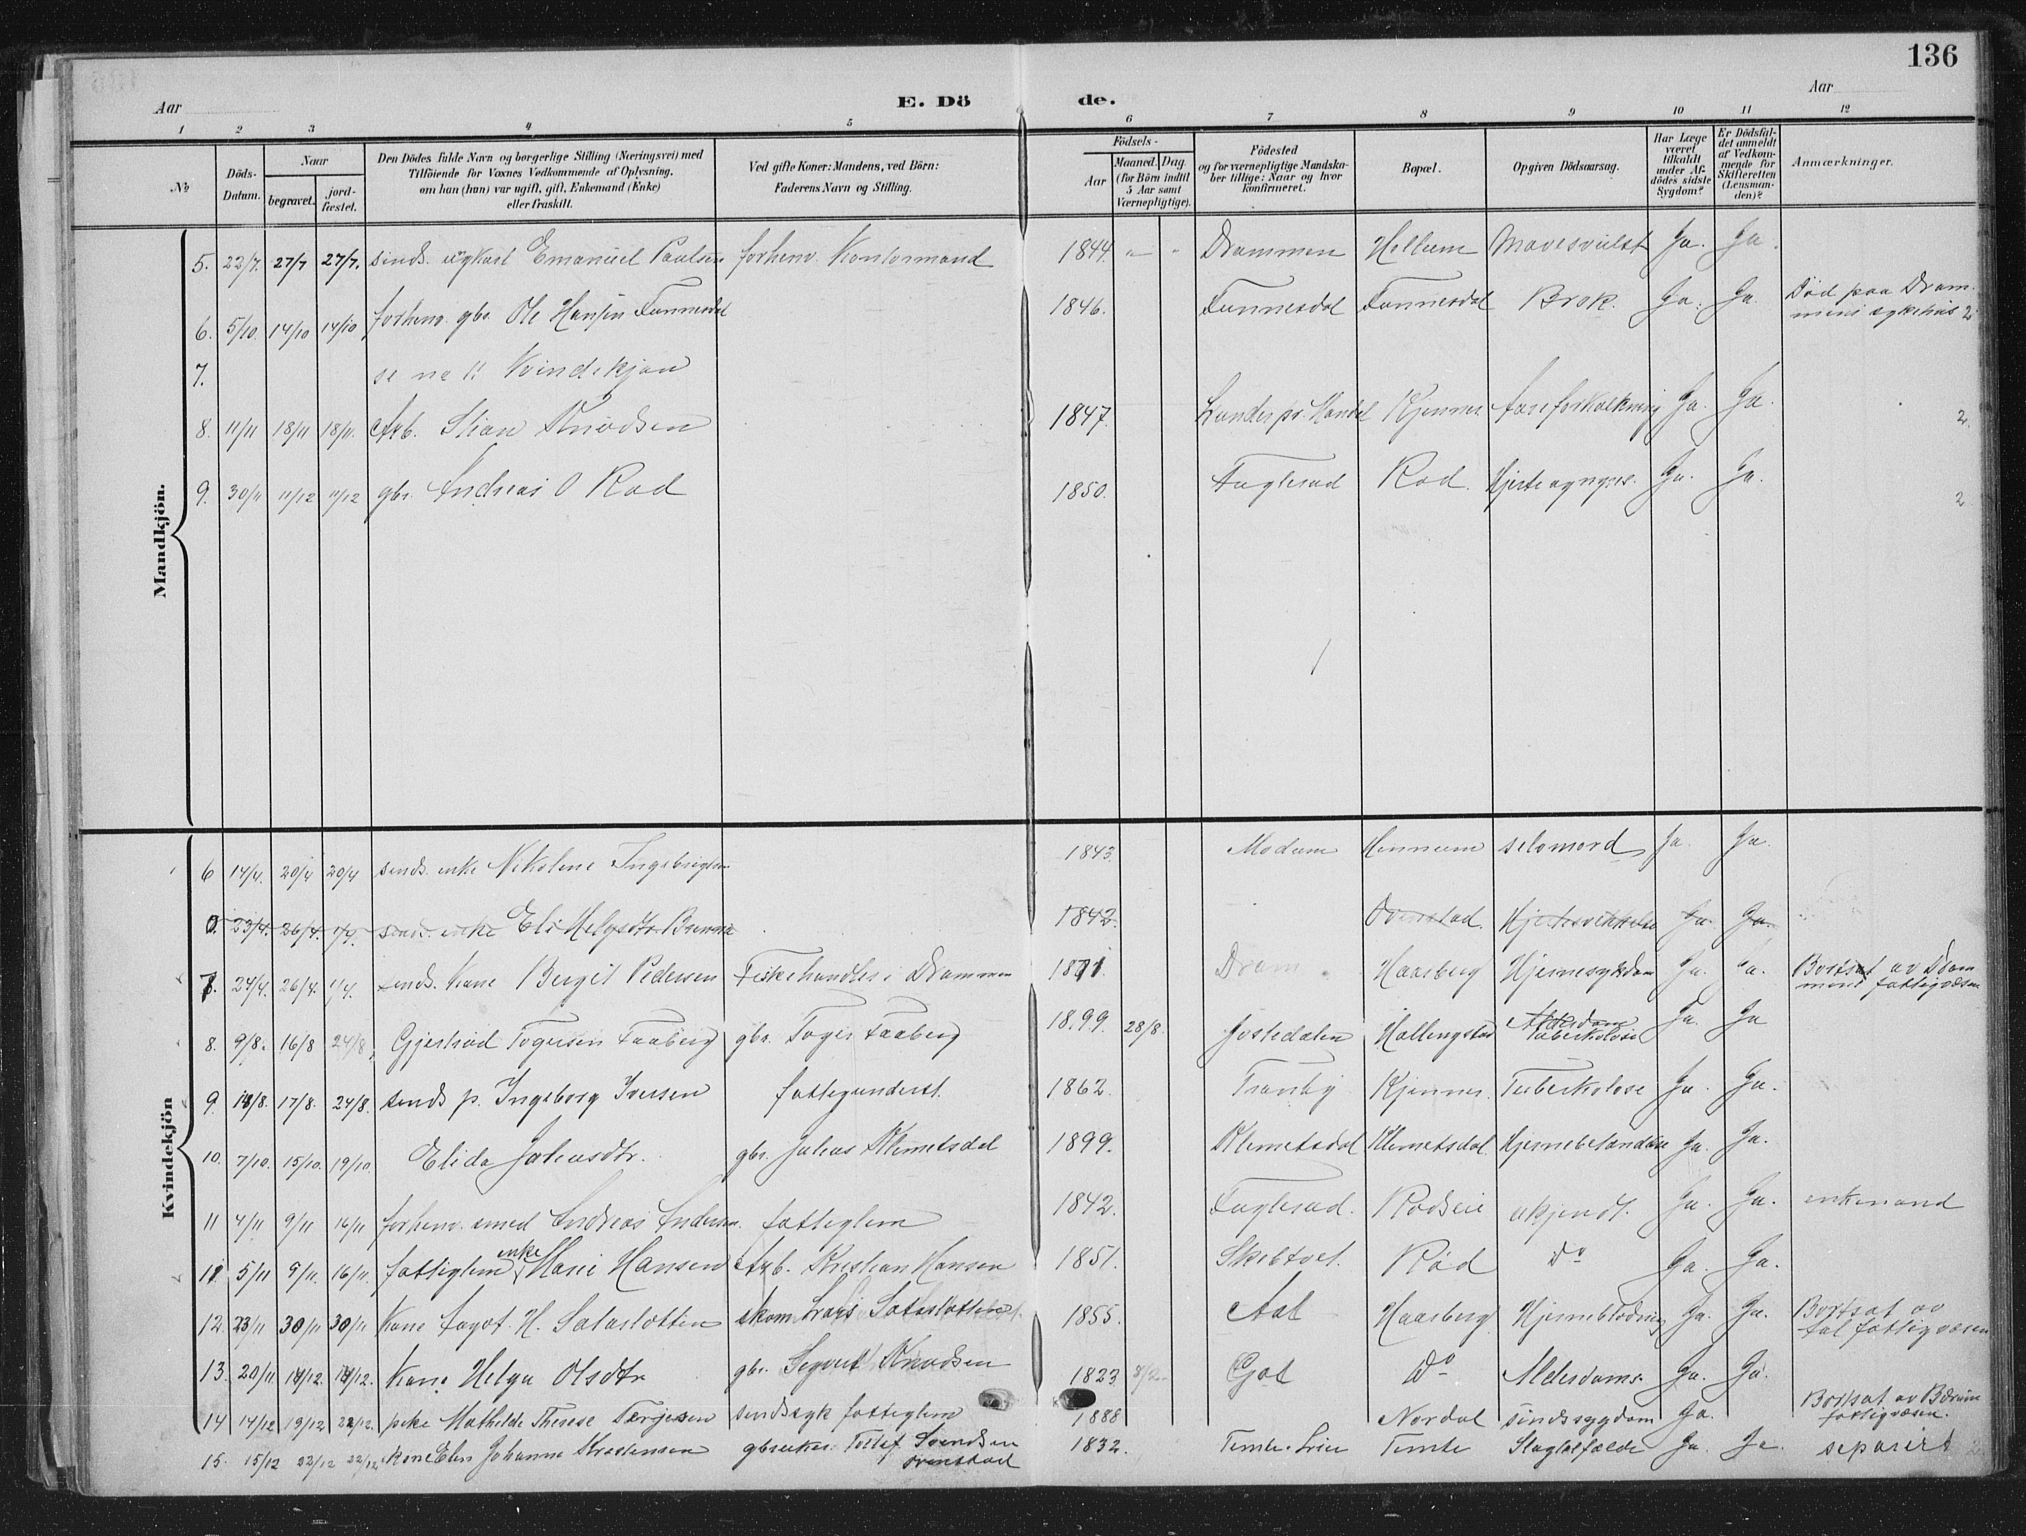 136
Aar
E. Dö de.
Aar
1 2 3 4 5 6 7 8 9 10 11 12
No
Döds-Datum.
Naar
begravet.
jord-fæstet.
Den Dödes fulde Navn og borgerlige Stilling (Næringsvei) med
Tilföiende for Voxnes Vedkommende af Oplysning,
om han (hun) var ugift, gift, Enkemand (Enke)
eller fraskilt.
Ved gifte Koner: Mandens, ved Börn:
Faderens Navn og Stilling.
Födsels-
Aar
Maaned. Dag.
(for Börn indtil
5 Aar samt
Værnepligtige).
Födested
og for værnepligtige Mandska-
ber tillige: Naar og hvor
konfirmeret.
Bopæl.
Opgiven Dödsaarsag.
Har Læge
været
tilkaldt
under Af-
dödes sidste
Sygdom?
Er Dödsfal-
det anmeldt
af Vedkom-
mende for
Skifteretten
(Lensman-
den)?
Anmærkninger.
Mandkjön.
5. 23/7. 27/7 27/7. sinds. ugkarl Emanuel Paulsen forhenv. Kontormand 1844. " " Drammen Hellum Mavesvulst Ja. Ja.
6. 5/10. 14/10 14/10 forhenv. gbr. Ole Hansen Funnesdal 1846. Funnesdal Funnesdal Brok. Ja. Ja. Død paa Dram-
mens sykehus 2
7. se no 11 Kvindekjøn
8. 11/11 18/11 18/11. Arb. Stian Knudsen 1847. Lunder pr. Mandal Kjenner Aareforkalkning Ja. Ja. 2.
9. 30/11 11/12 11/12 gbr. Andreas O Rød 1850. Fuglerud Rød. Hjerte Ja. Ja. 2
Kvindekjön
6 14/4. 20/4 20/4 sinds. enke Nikoline Ingebrigtsen 1843 Modum Hennum selvmord Ja. Ja.
23/4. 26/4. 1/4. sinds. enke Eli Helgesdtr 1842. Ovenstad. Hjertesvækkelse Ja. Ja.
7. 24/4. 26/4. 1/4. sinds. Kone Bergit Pedersen Fiskehandler i Drammen 1871. Dram. Haasberg Hjernesykdom Ja. Ja. Bortsat av Dram
mens fattigvæsen
8. 9/8. 16/8 24/8. Gjertrud Togersen Faaberg gbr. Toger Faaberg 1899. 28/8. Jostedalen Hallengstad Alderdom Tuberkulose Ja. Ja
9 10/8. 17/8. 24/8. sinds p. Ingeborg Iversen fattigunderst. 1862. Tranby Kjenner. Tuberkulose Ja. Ja.
10. 7/10. 15/10. 19/10. Elida Juliusdtr. gbr. Julius Klemetsdal 1899. Klemetsdal Klemetsdal. Hjernebetændelse Ja. Ja.
11 4/11 9/11 16/11 forhenv. smed Andreas Andersen. fattiglem 1842. Fuglerud. Rødseie ukjendt. Ja. Ja. enkemand
11. 5/11 9/11. 16/11. fattiglem enke Marie Hansen Arb. Kristian Hansen 1851. Skibtvet. Rød Do Ja. Ja.
12. 23/11 30/11 30/11 Kone Aagot. H. Sataslotten skom. Lars Sataslotten 1855. Aal Haasberg. Hjerneblødning Ja. Ja. Bortsat av
Aal fattigvæsen
13. 20/11 14/12. 14/12. Kone Helga Olsdtr gbr. Sigvert Knudsen 1823. Gol Do Alderdoms. Ja. Ja.
14 14/12 19/12 22/12. pike Mathilde Therese Terjesen sindssyk fattiglem 1888 Nordal sindssygdom Ja. Bortsat av Bærum
fattigvæsen.
15. 15/12 22/12 22/12. Kone Elen Johanne Kristensen gbruker Tollef Svendsen
Ovenstad 1832. Temte Lier Temte Slagtilfælde Ja. Ja. separert 2